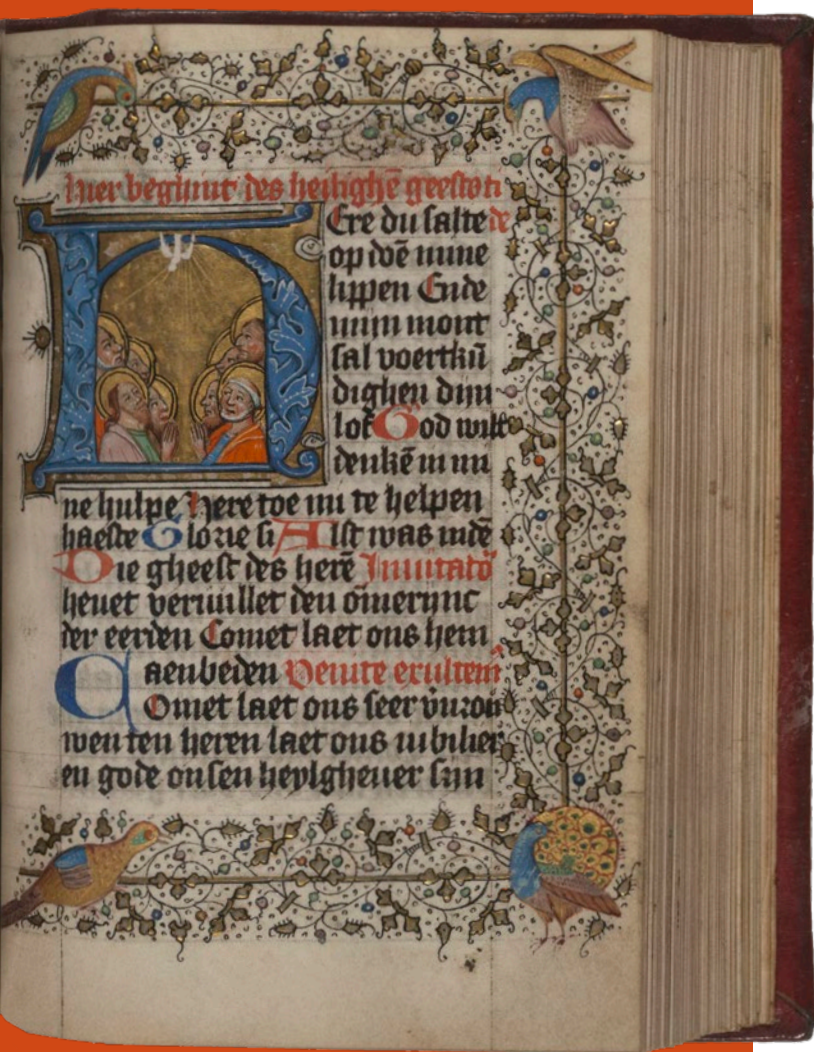 hier beghint des heilighē gheest ti
de
Here du salte
op doē mine
lippen Ende
minn mont
sal voertkū
dighen dijn
lof God wilt
denkē in mi
ne hulpe Here toe mi te helpen
haeste Glorie si Alst was indē
Die gheest des herē Inuitatō
heuet veruullet den ōmerinc
der eerden Comet laet ons hem
aenbeden Venite exultem̄
Comet laet ons seer v̄urou
wen ten heren laet ons iubilier
en gode onsen heylgheuer sijn